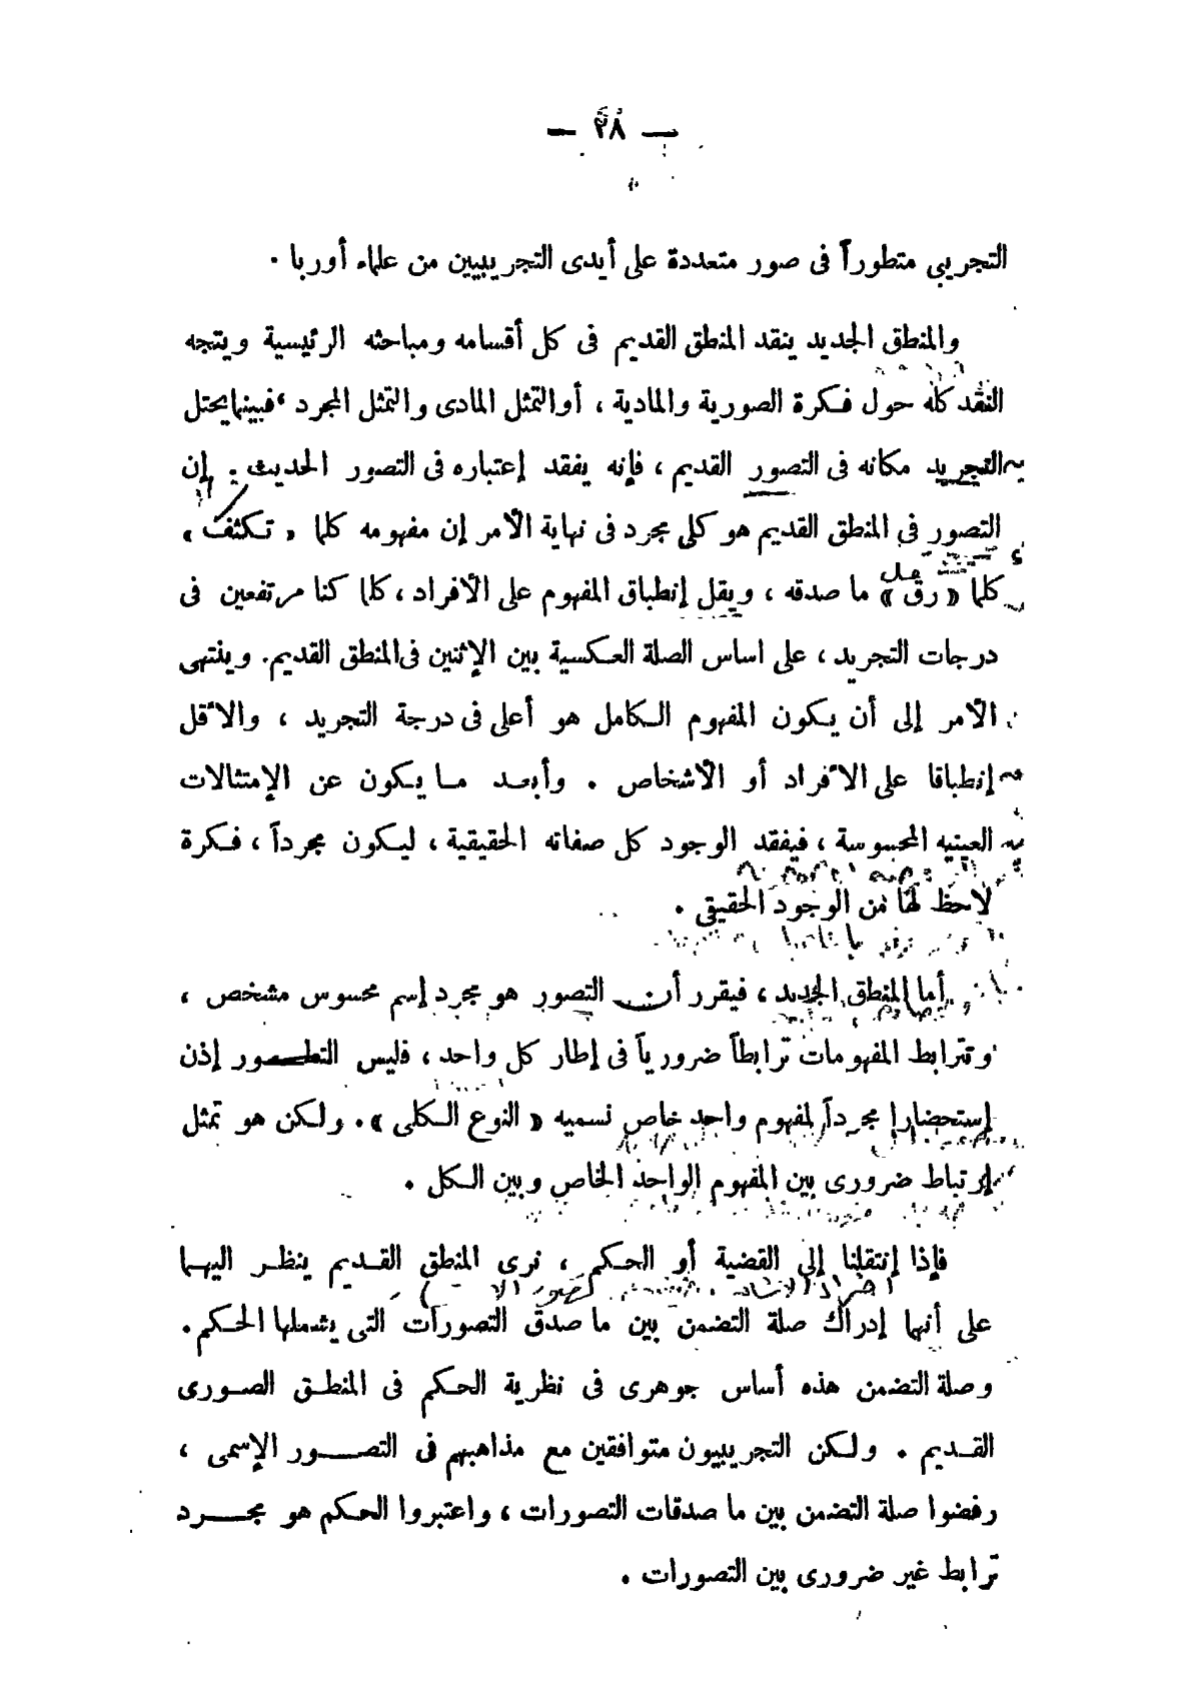 — ٢٨ —
التجريبى متطوراً فى صور متعددة على أيدى التجريبيين من علماء أوربا .
والمنطق الجديد ينقد المنطق القديم فى كل أقسامه ومباحثه الرئيسية ويتجه
النقد كله حول فكرة الصورية والمادية ، أوالتمثل المادى والتمثل المجرد ، فبينما يحتل
التجريد مكانه فى التصور القديم ، فإنه يفقد إعتباره فى التصور الحديث . إن
التصور فى المنطق القديم هو كلى مجرد فى نهاية الأمر إن مفهومه كلما « تكثف »
كلما « رق » ما صدقه ، ويقل إنطباق المفهوم على الأفراد ، كلما كنا مرتفعين فى
درجات التجريد ، على اساس الصلة العكسية بين الإثنين فى المنطق القديم . وينتهى
الأمر إلى أن يكون المفهوم الكامل هو أعلى فى درجة التجريد ، والأقل
إنطباقا على الأفراد أو الأشخاص . وأبعد ما يكون عن الإمتثالات
العينيه المحسوسة ، فيفقد الوجود كل صفاته الحقيقية ، ليكون مجرداً ، فكرة
لاحظ لها من الوجود الحقيقى .
أما المنطق الجديد ، فيقرر أن التصور هو مجرد إسم محسوس مشخص ،
وتترابط المفهومات ترابطاً ضرورياً فى إطار كل واحد ، فليس التطور إذن
إستحضارا مجرداً لمفهوم واحد خاص نسميه « النوع الكلى » . ولكن هو تمثل
إرتباط ضرورى بين المفهوم الواحد الخاص وبين الكل .
فإذا إنتقلنا إلى القضية أو الحكم ، نرى المنطق القديم ينظر اليها
على أنها إدراك صلة التضمن بين ما صدق التصورات التى يشملها الحكم .
وصلة التضمن هذه أساس جوهرى فى نظرية الحكم فى المنطق الصورى
القديم . ولكن التجريبيون متوافقين مع مذاهبهم فى التصور الإسمى ،
رفضوا صلة التضمن بين ما صدقات التصورات ، واعتبروا الحكم هو مجرد
ترابط غير ضرورى بين التصورات .